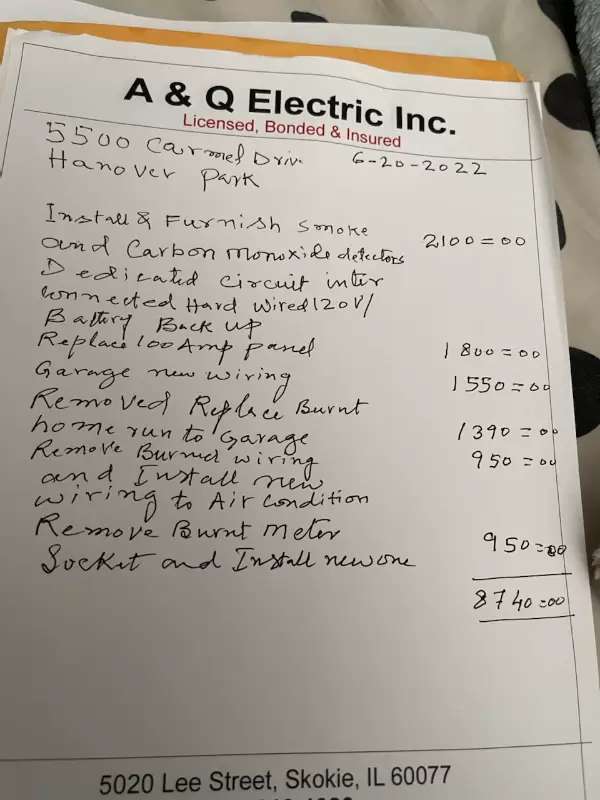 A & Q Electric Inc.
Licensed, Bonded & Insured
5500 Carmel Driv. 6-20-2022
Hanover Park
Install & Furnish Smoke
and Carbon monoxide detectors 2100=00
Dedicated circuit inter
connected Hard wired 120V/
Battery Back up
Replace 100 Amp panel 1800=00
Garage new wiring 1550=00
Removed Replace Burnt
home run to Garage 1390=00
Remove Burned wiring 950=00
and Install new
wiring to Air Condition
Remove Burnt meter
Socket and Install new one 950=00
8740=00
5020 Lee Street, Skokie, IL 60077